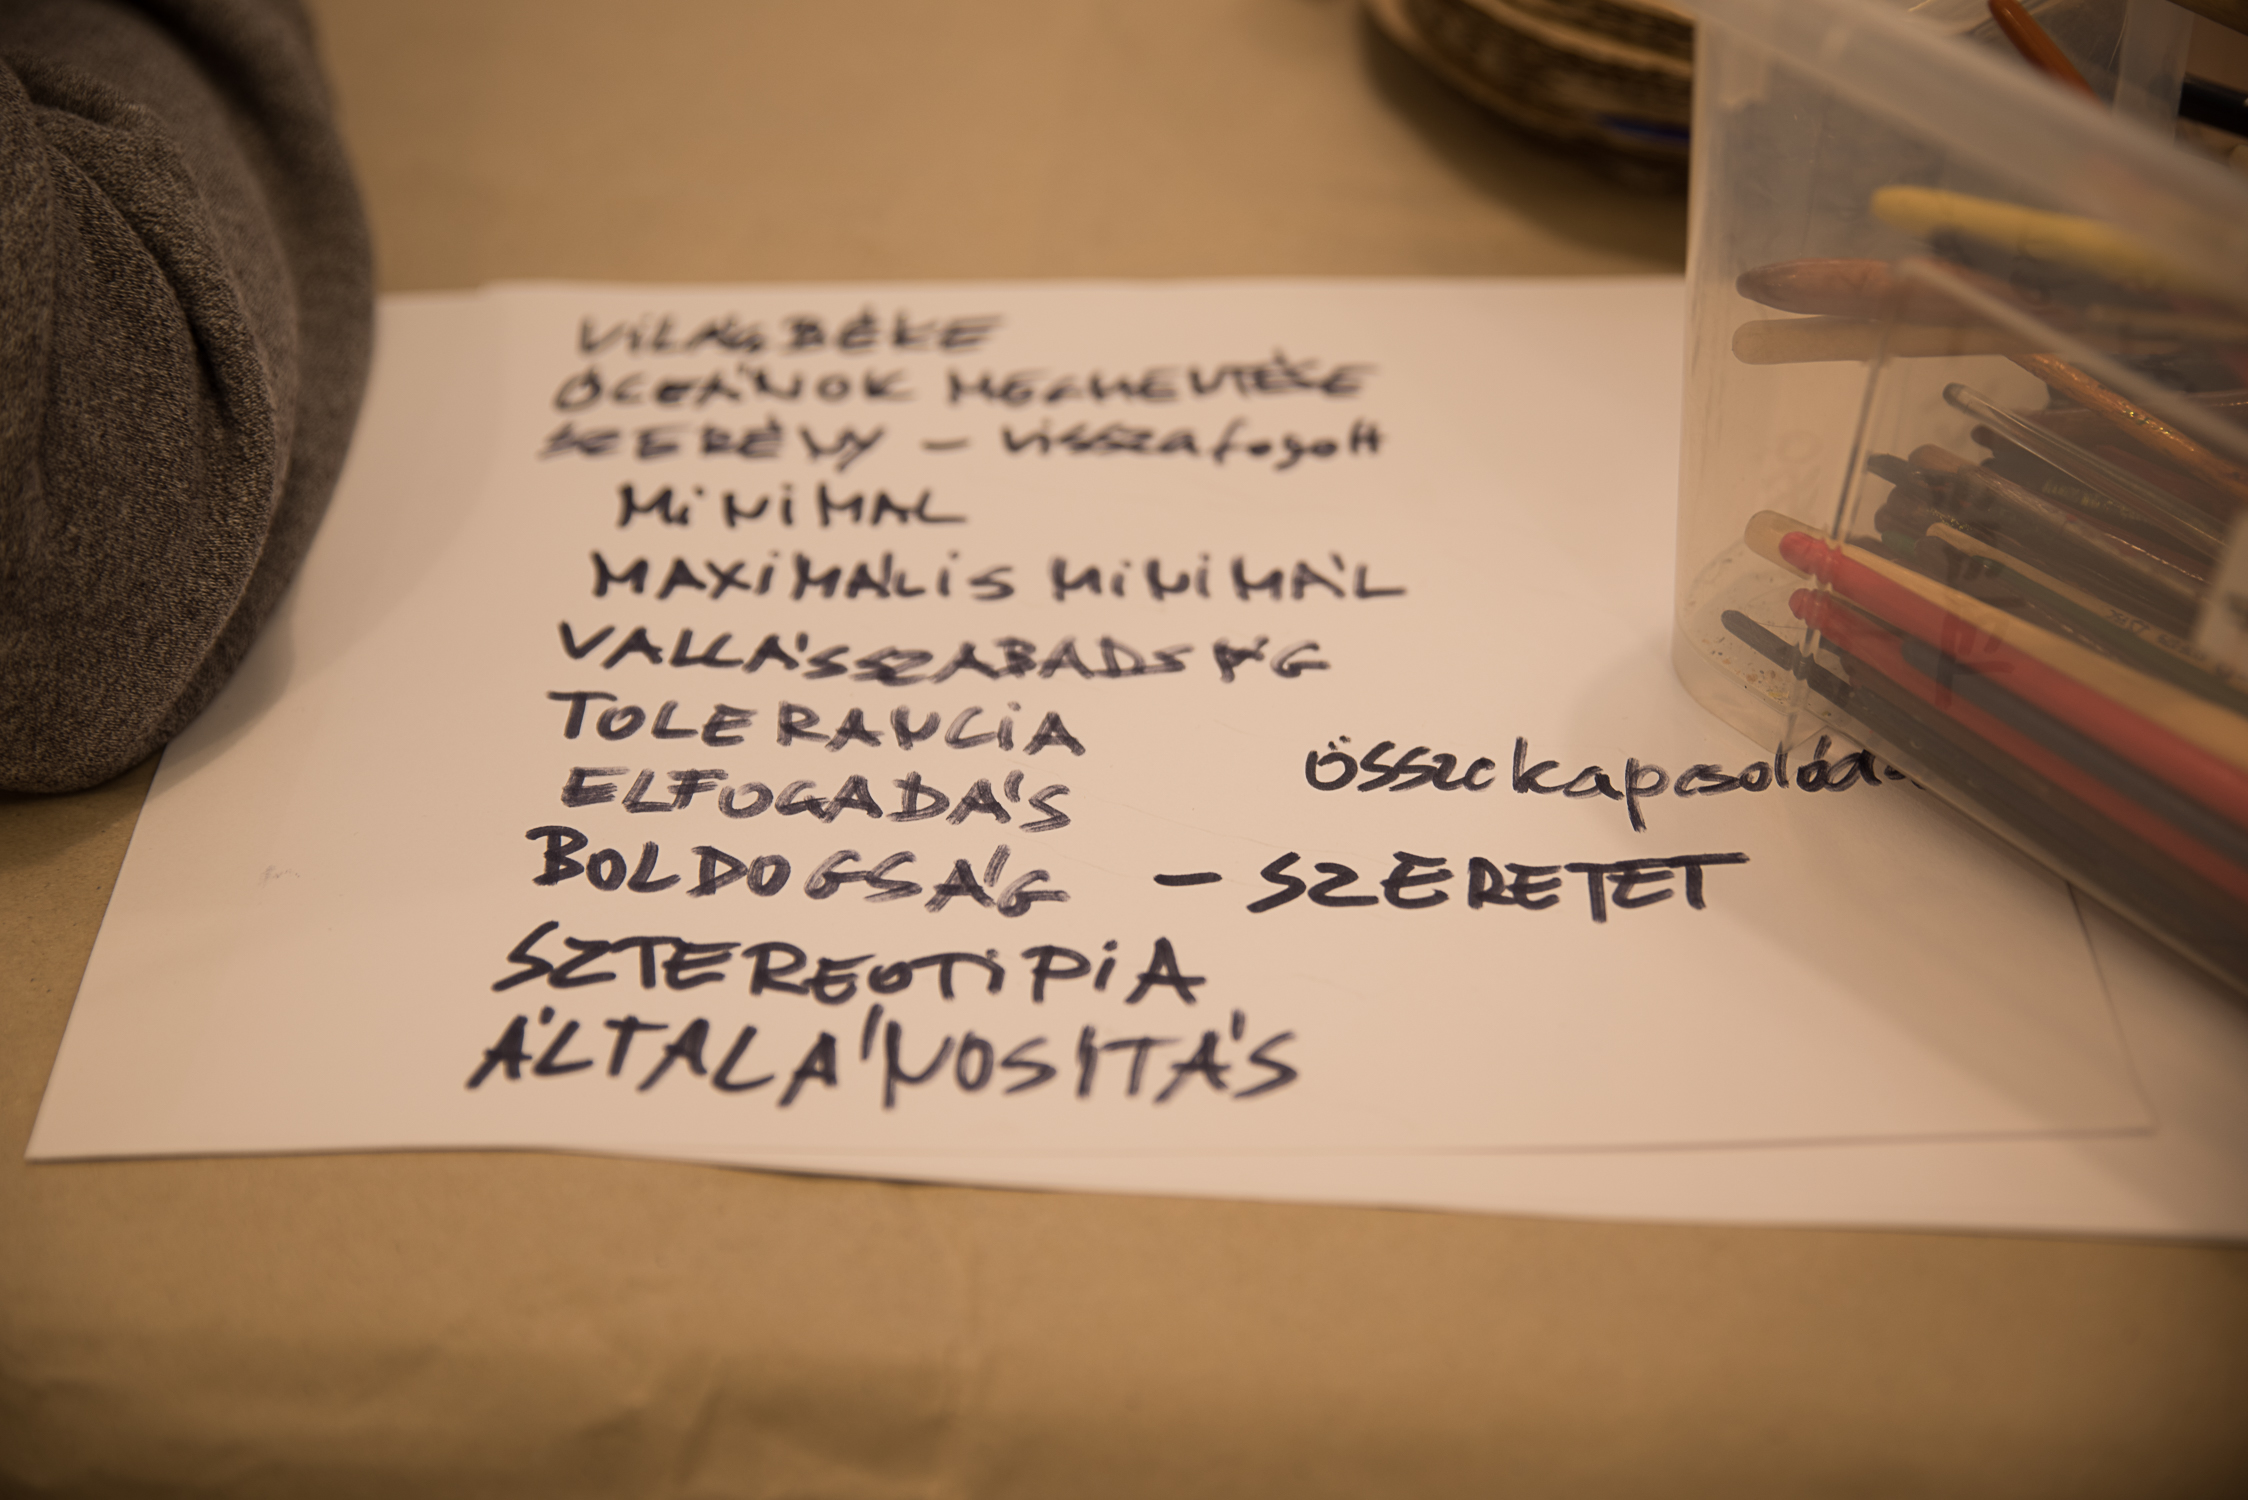 VILÁGBÉKE
ÓCEÁNOK MEGMENTÉSE
SZERÉNY – visszafogott
MiNiMAL
MAXiMÁLiS MiNiMÁL
VALLÁSSZABADSÁG
TOLERANCiA
ELFOGADÁS
összekapcsolódá
BOLDOGSÁG – SZERETET
SZTEREOTiPiA
ÁLTALÁNOSITÁS